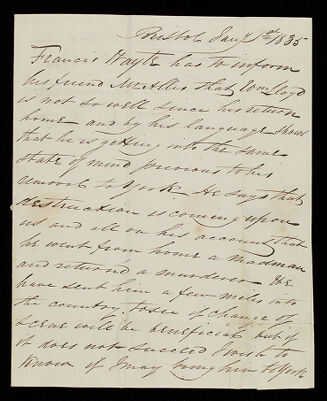 Bristol Jany 1st 1835
Francis Hayte has to inform
his friend Mr Allis that Wm Lloyd
is not so well since his return
home and by his language shows
that he is getting into the same
state of mind previous to his
removal to York. He says that
destruction is coming upon
us and all on his account that
he went from home a madman
and return'd a murderer We
have sent him a few miles into
the country to see if change of
scene will be beneficial but if
it does not succeed I wish to
know if I may bring him to York